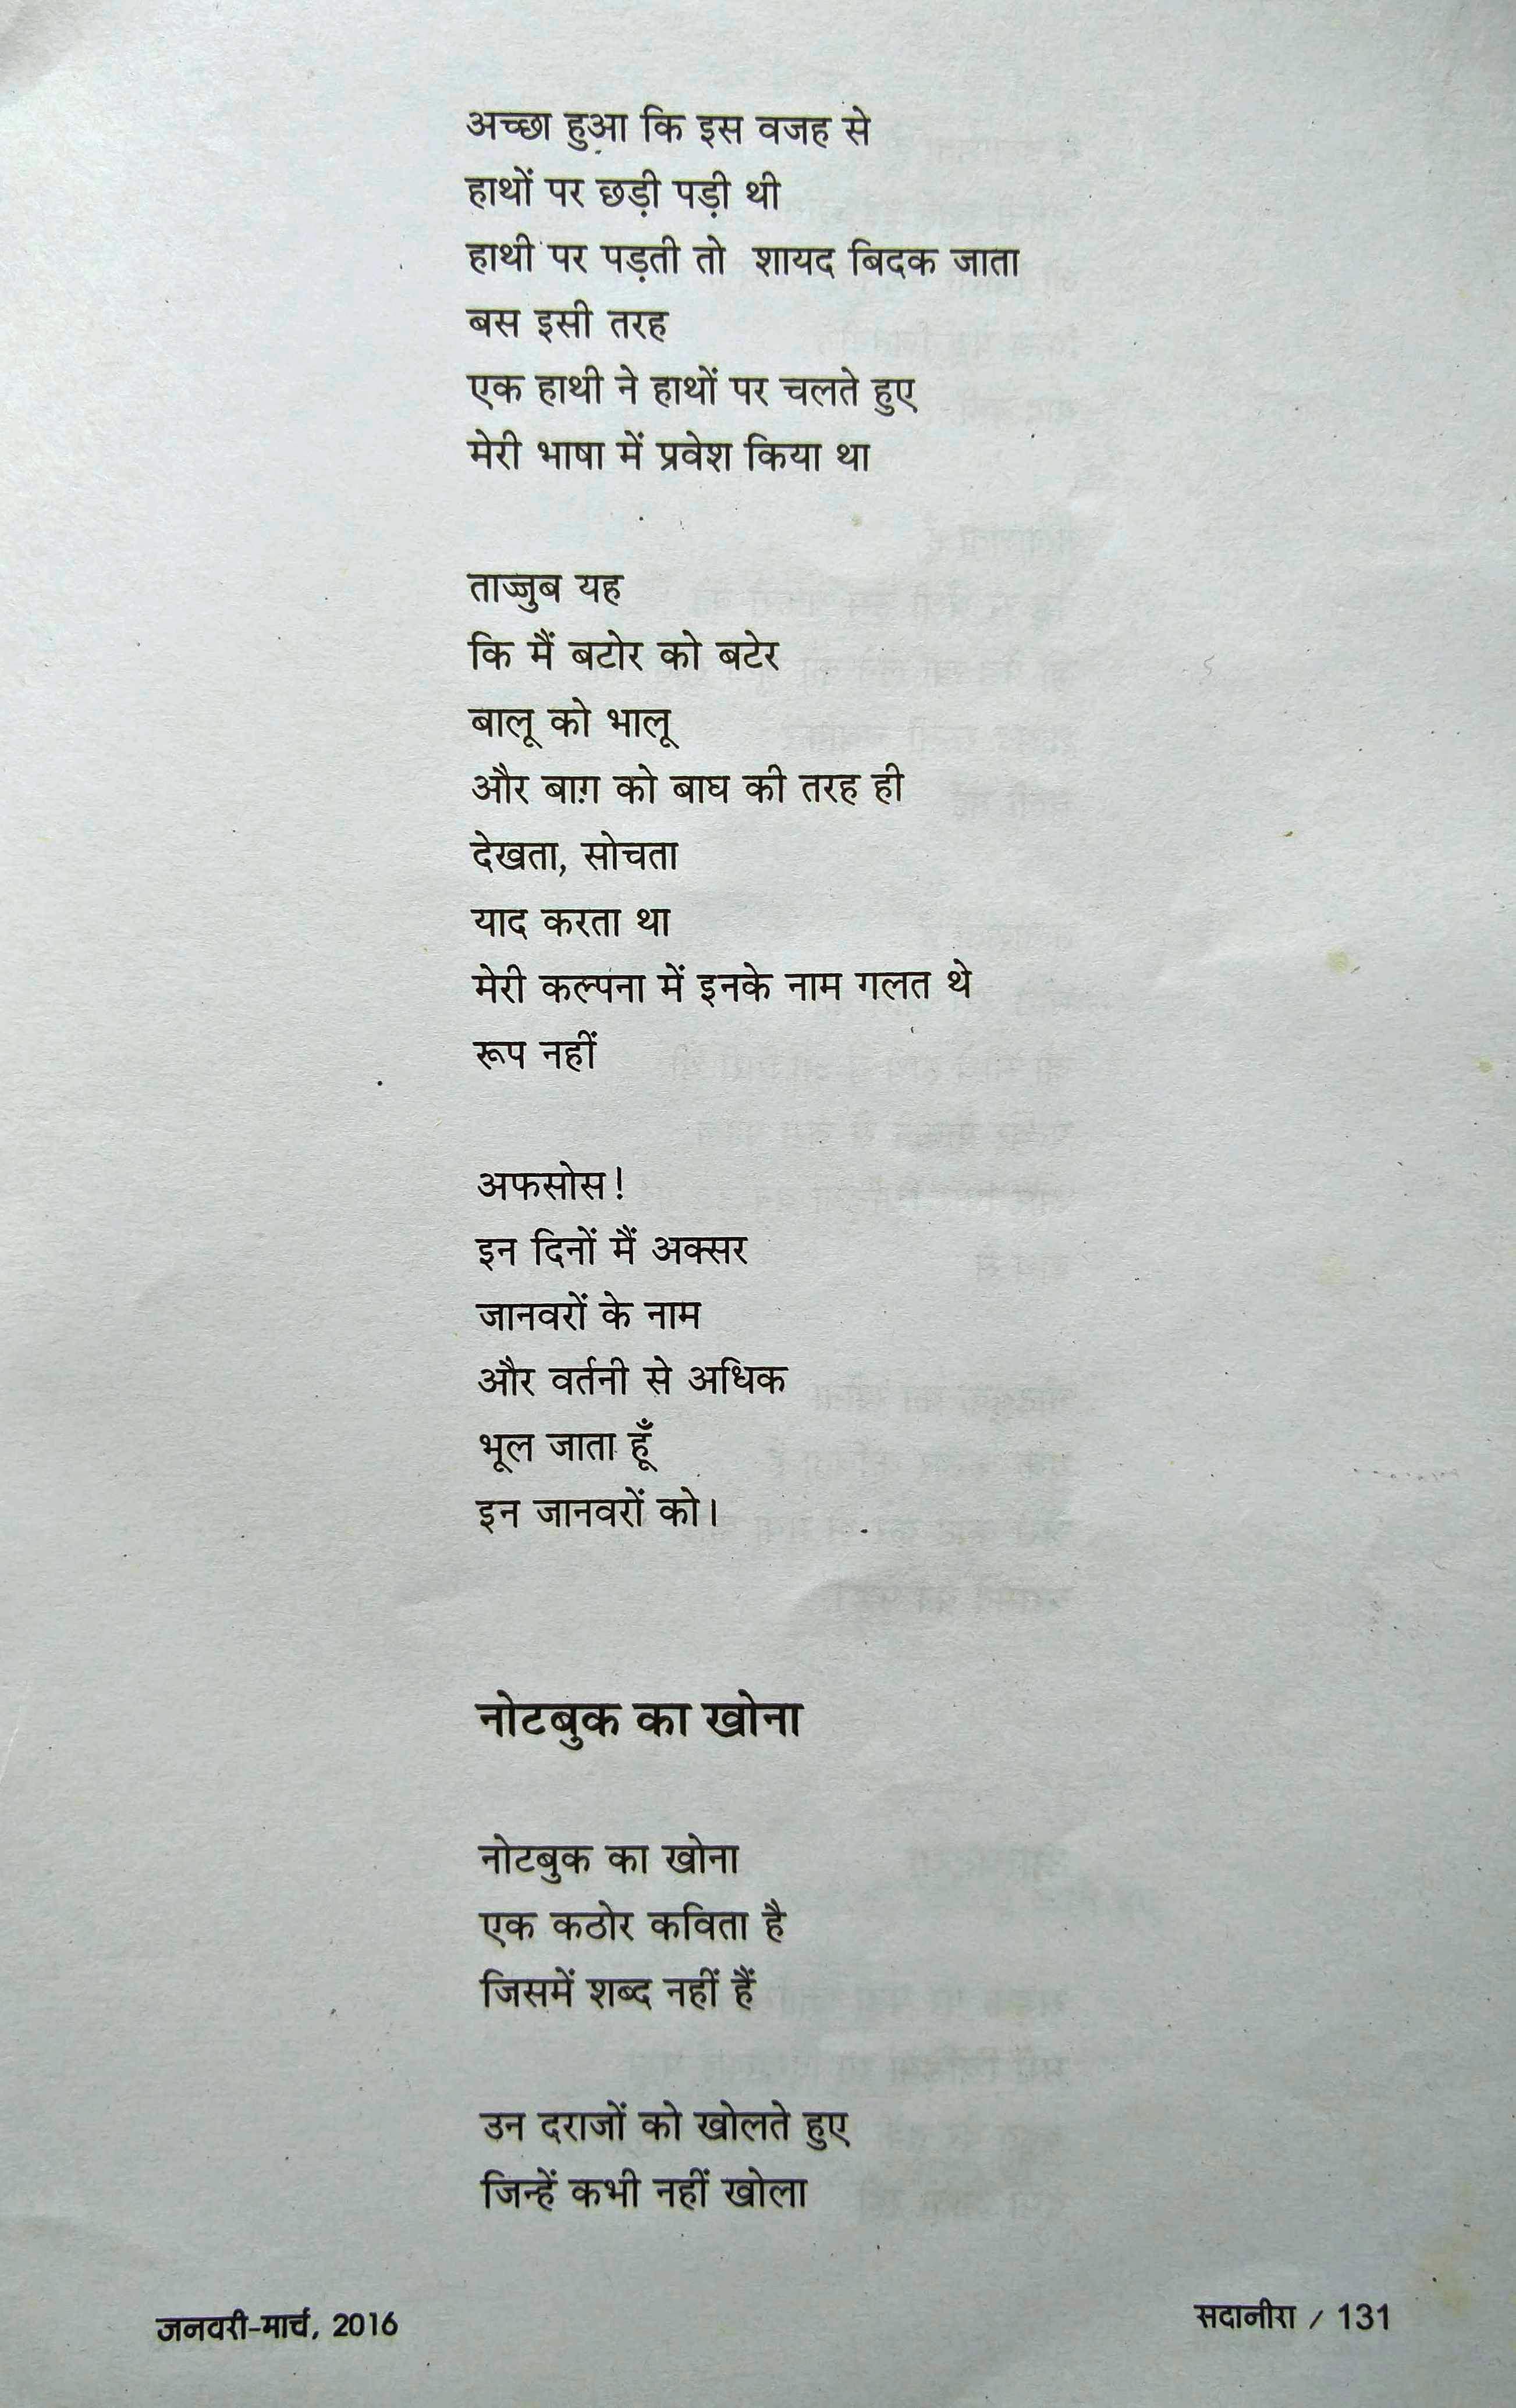 अच्छा हुआ कि इस वजह से
हाथों पर छड़ी पड़ी थी
हाथी पर पड़ती तो शायद बिदक जाता
बस इसी तरह
एक हाथी ने हाथों पर चलते हुए
मेरी भाषा में प्रवेश किया था
ताज्जुब यह
कि मैं बटोर को बटेर
बालू को भालू
और बाग़ को बाघ की तरह ही
देखता, सोचता
याद करता था
मेरी कल्पना में इनके नाम गलत थे
रूप नहीं
अफसोस!
इन दिनों मैं अक्सर
जानवरों के नाम
और वर्तनी से अधिक
भूल जाता हूँ
इन जानवरों को।
नोटबुक का खोना
नोटबुक का खोना
एक कठोर कविता है
जिसमें शब्द नहीं हैं
उन दराजों को खोलते हुए
जिन्हें कभी नहीं खोला
जनवरी-मार्च, 2016
सदानीरा / 131